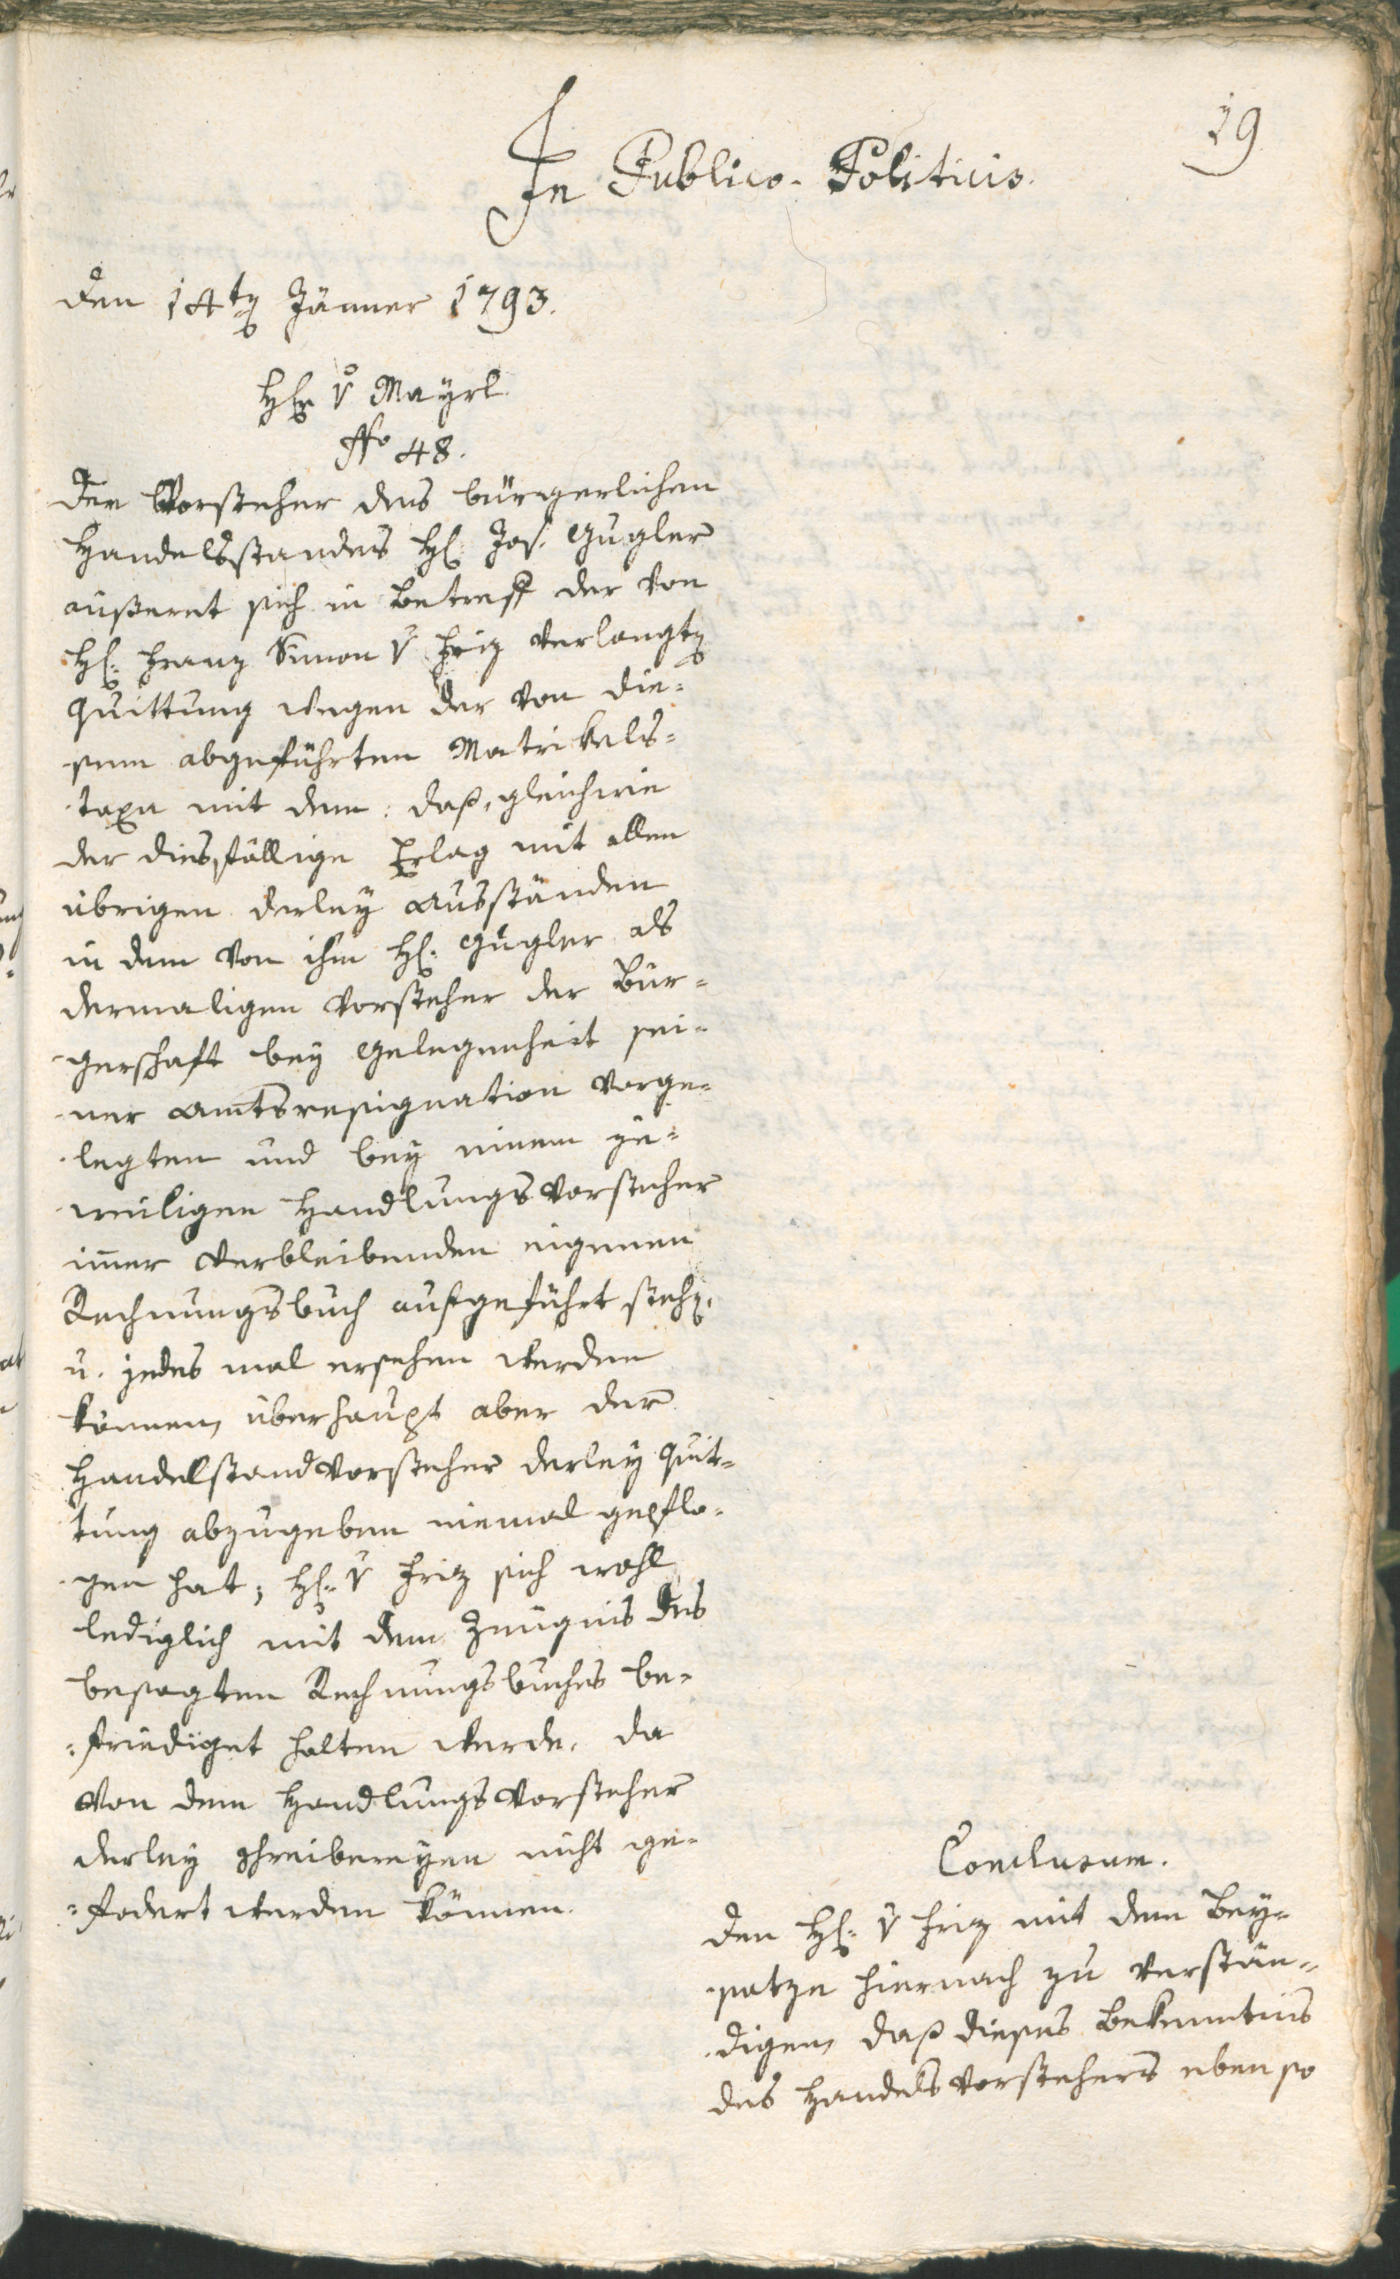 19
In Publico-Politicis.
den 14ten Jänner 1793.
Hr. v Mayrl
No 48.
Der Vorsteher des bürgerlichen
Handelsstandes H. Jos. Gugler
äußeret sich in Betreff der von
H. Franz Simon v Friz verlangten
Quittung wegen der von die-
sem abgeführten Matrikels-
taxe mit dem: daß, gleichwie
der diesfällige Erlag mit allen
übrigen derley Ausständen
in dem von ihm H. Gugler als
dermaligen Vorsteher der Bür-
gerschaft bey Gelegenheit sei-
ner Amtsresignation vorge-
legten und bey einem ze-
weiligen Handlungsvorsteher
imer verbleibenden eigenen
Rechnungsbuch aufgeführt stehe,
u. jedes mal ersehen werden
können, überhaupt aber der
Handelstandvorsteher derley Quit-
tung abzugeben niemal gepflo-
gen hat; H. v Friz sich wohl
lediglich mit dem Zeugnis des
besagten Rechnungsbuches be-
friediget halten werde, da
von dem Handlungsvorsteher
derley Schreibereyen nicht ge-
fodert werden können.
Conclusum.
Den H. v Friz mit dem Bey-
satze hiernach zu verstän-
digen, daß dieses Bekenntnis
des Handelsvorstehers eben so